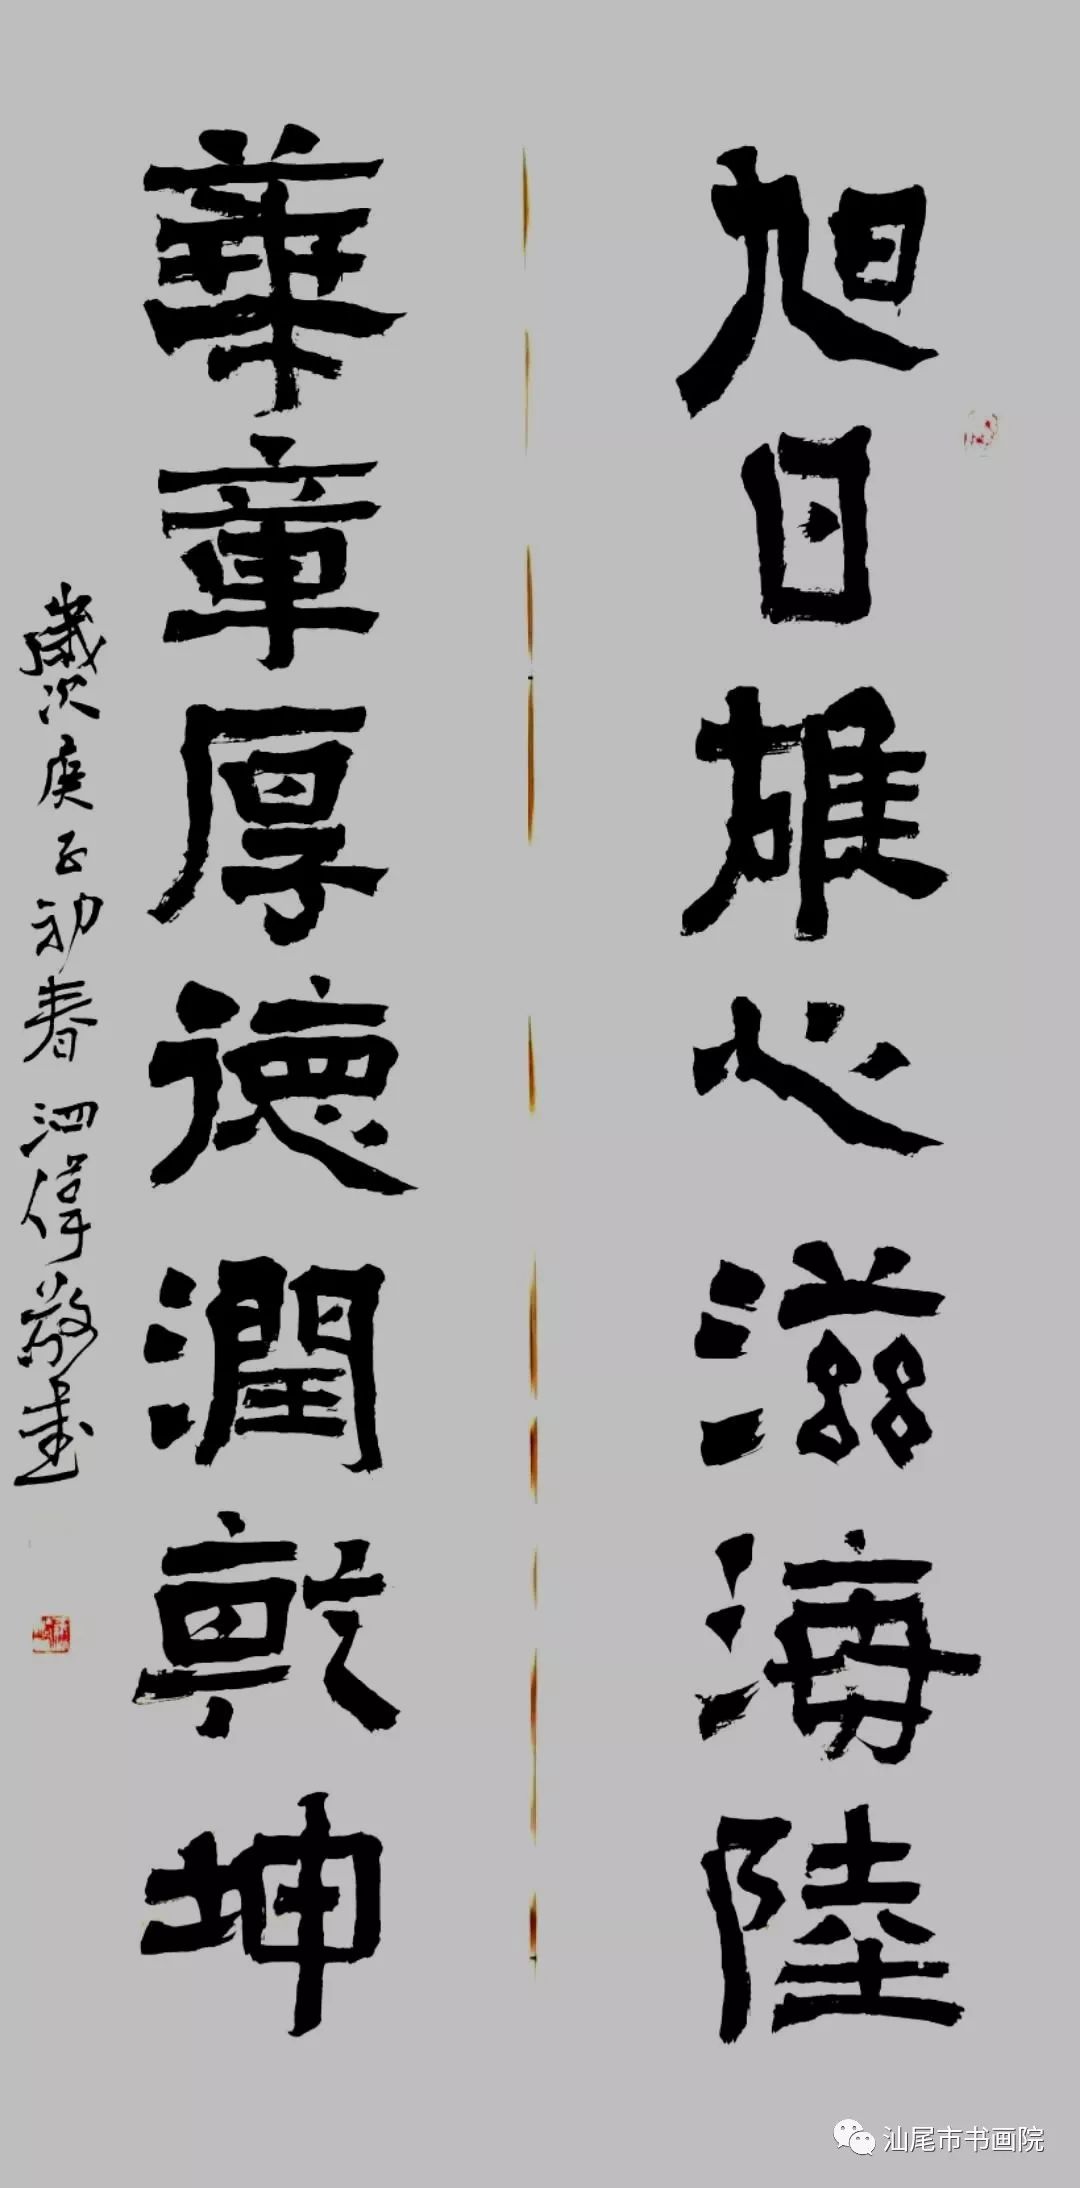 旭日雄心滋海陸
華章厚德潤乾坤
歲次庚子初春 泗偉敬書
汕尾市书画院